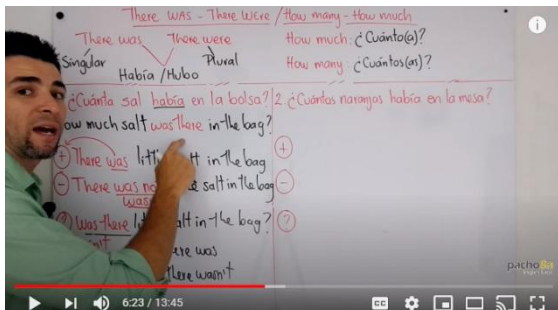 There WAS - There WERE / How many - How much
There was There were
Singular Plural
Había / Hubo
How much: ¿Cuánto(a)?
How many: ¿Cuántos(as)?
¿Cuánta sal había en la bolsa?
How much salt was there in the bag?
+ There was in the bag
- There was salt in the bag
? Was there salt in the bag?
there was
there wasn't
2. ¿Cuántas naranjas había en la mesa?
+
-
?
pacho8a
6:23 / 13:45
CC